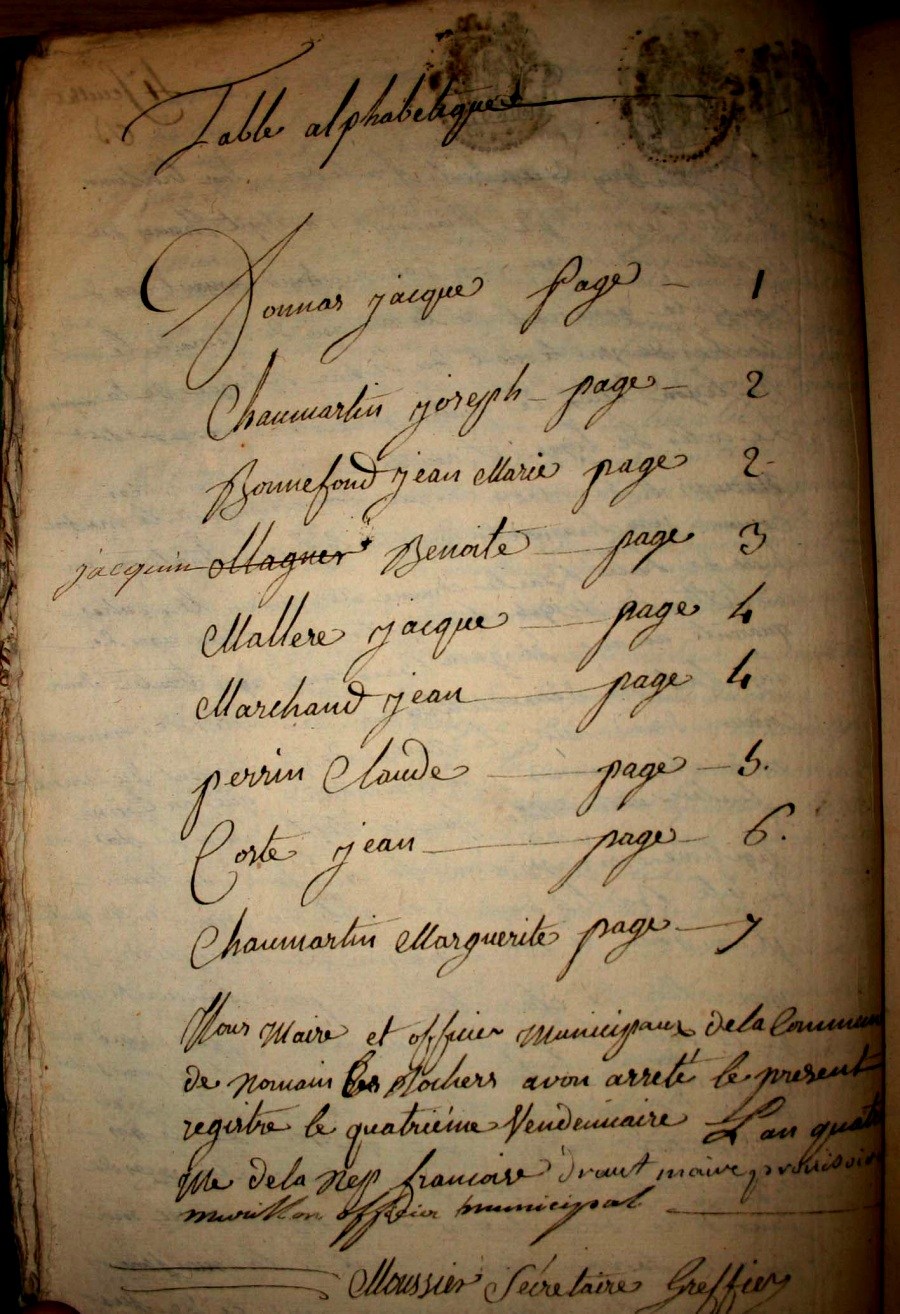 Table alphabetique
Donnas jacque page - 1
Chaumartin joseph - page - 2
Bonnefond jean Marie page 2
jacquin Magner Benoite page 3
Mallere jacque page 4
Marchand jean page 4
perrin Claude page - 5.
Coste jean page - 6.
Chaumartin Marguerite page - 7
Nous Maire et officier Municipaux dela Commune
de Romain les Rochers avon arreté le present
registre le quatriéme Vendemiaire L'an quatrie
me dela Rep francoise maire provisoire
officier municipal
Moussier Sécretaire Greffier